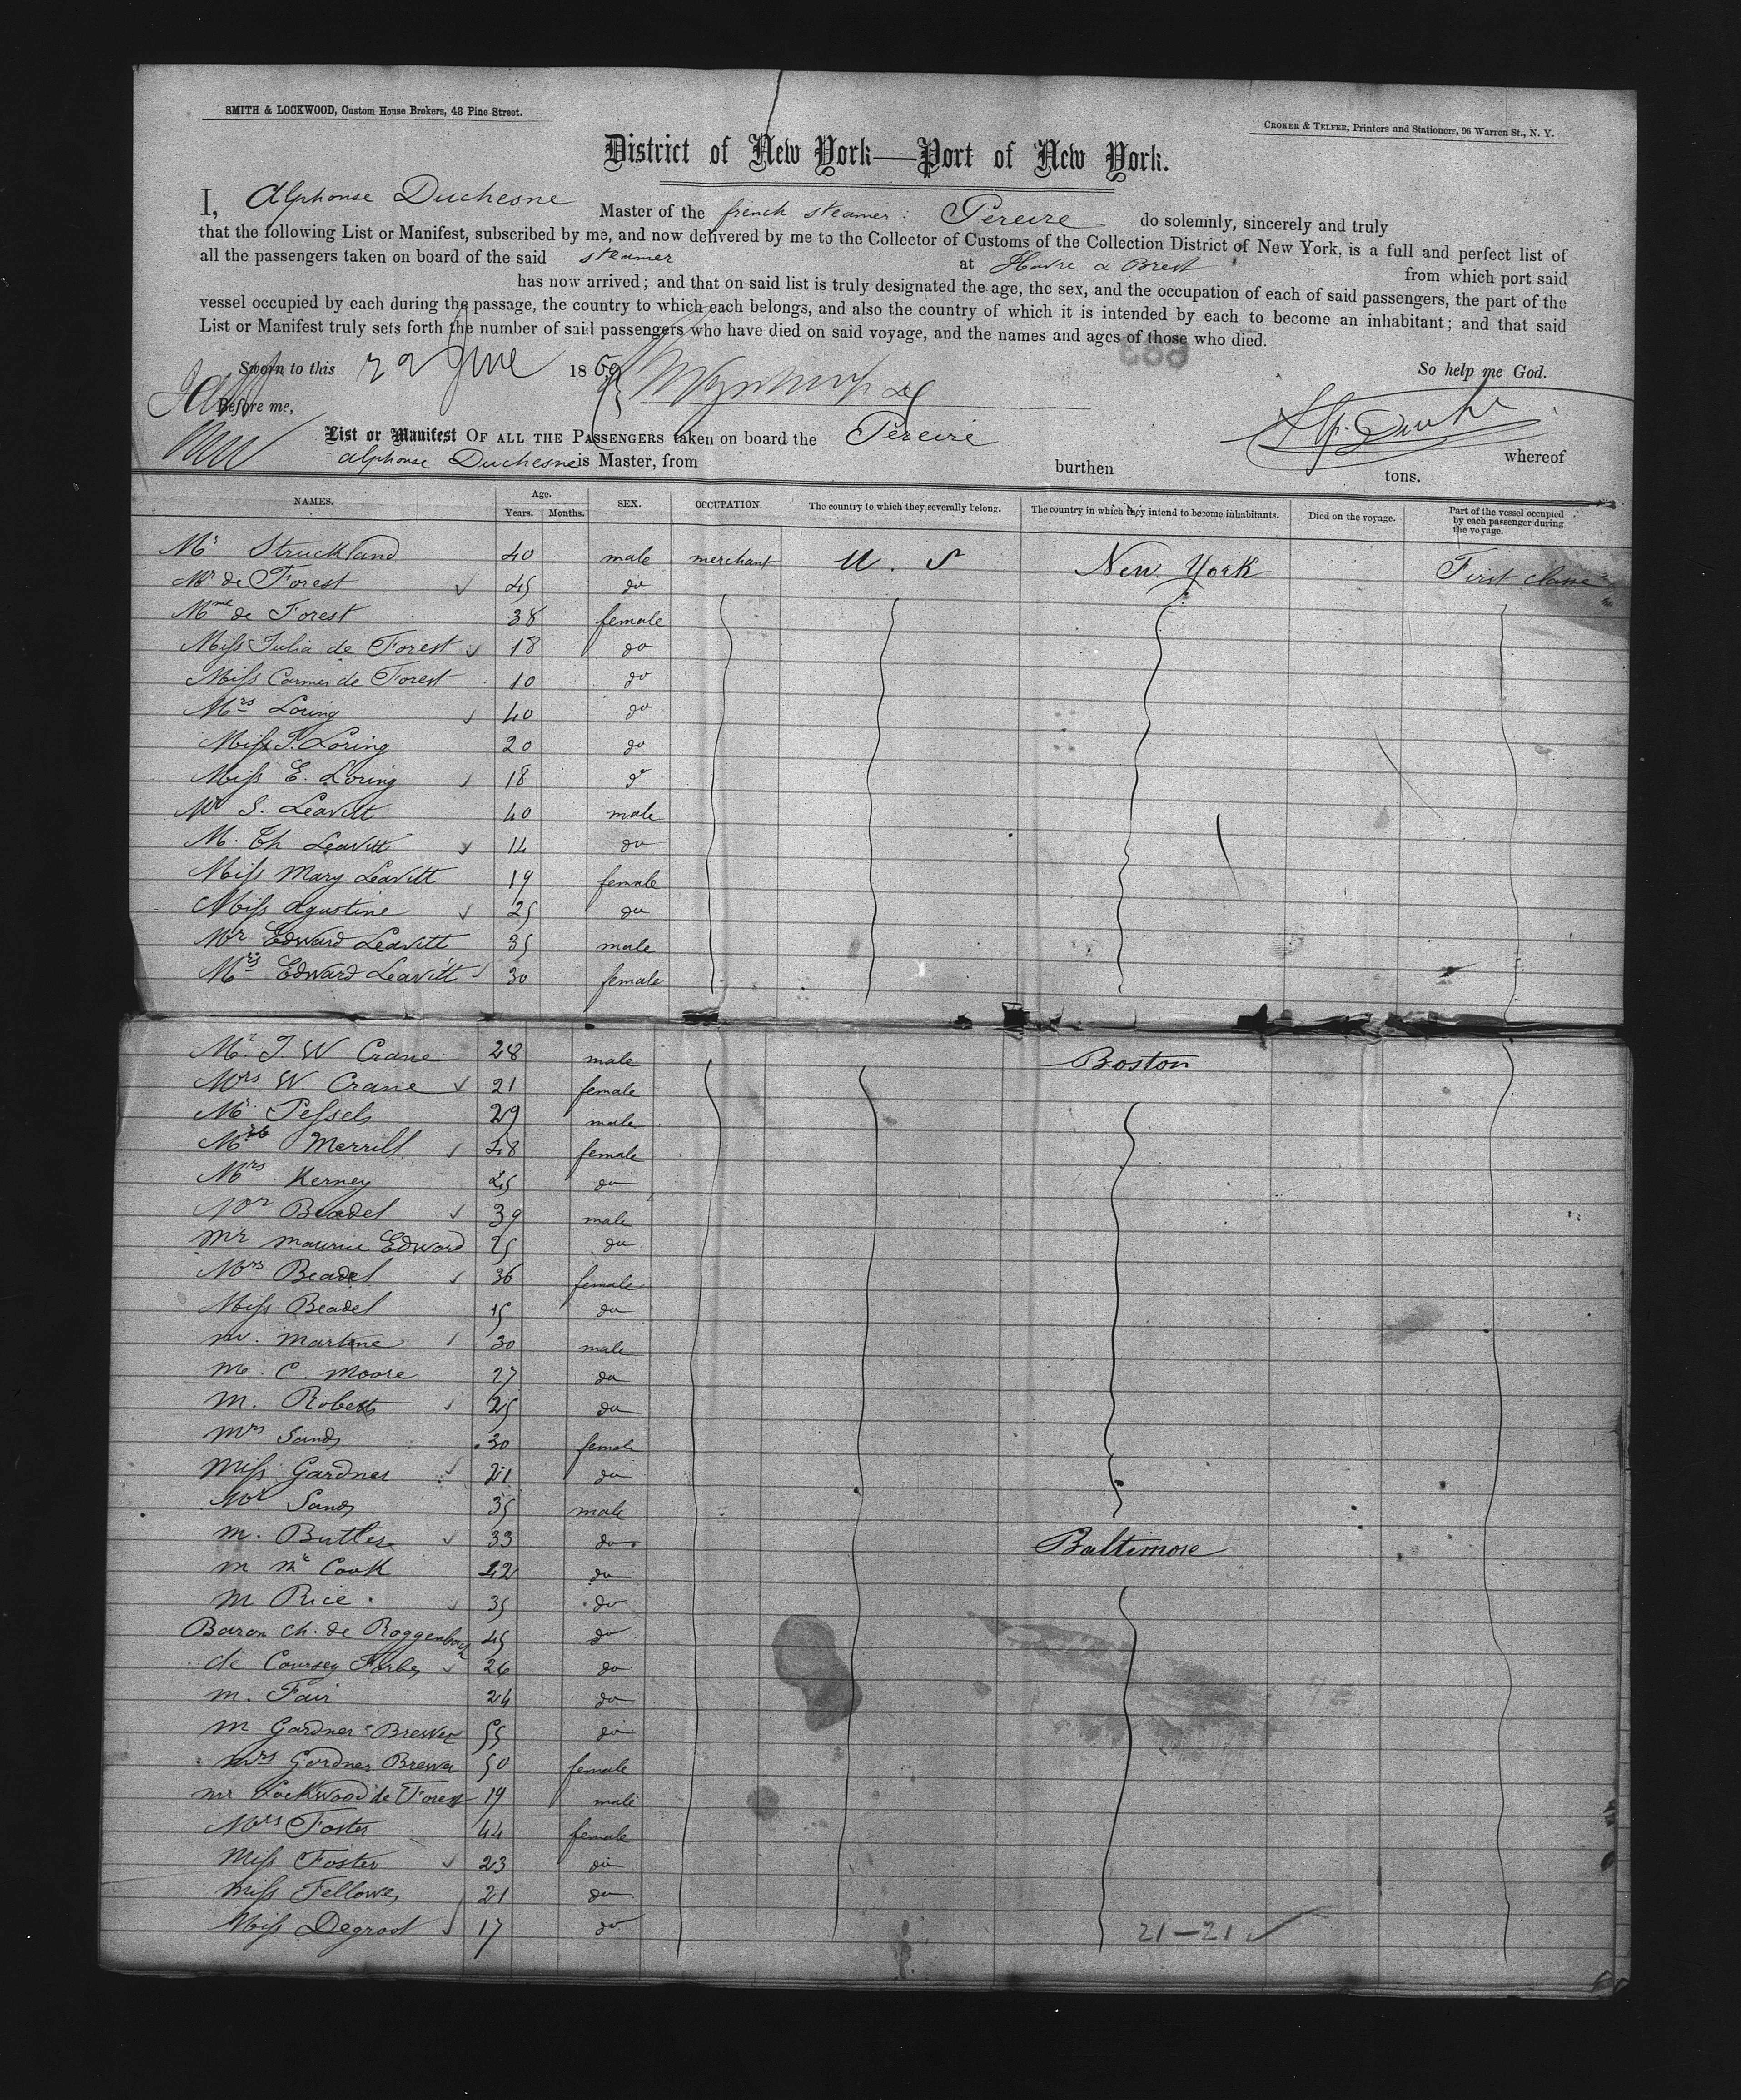 SMITH & LOCKWOOD, Custom House Brokers, 48 Pine Street.
CROKER & TELFER, Printers and Stationers, 96 Warren St., N. Y.
District of New York—Port of New York.
I, Alphonse Duchesne Master of the french steamer: Pereire do solemnly, sincerely and truly
that the following List or Manifest, subscribed by me, and now delivered by me to the Collector of Customs of the Collection District of New York, is a full and perfect list of
all the passengers taken on board of the said steamer at Havre & Brest from which port said
has now arrived; and that on said list is truly designated the age, the sex, and the occupation of each of said passengers, the part of the
vessel occupied by each during the passage, the country to which each belongs, and also the country of which it is intended by each to become an inhabitant; and that said
List or Manifest truly sets forth the number of said passengers who have died on said voyage, and the names and ages of those who died.
Sworn to this 22 June 1869 So help me God.
Before me,
List or Manifest OF ALL THE PASSENGERS taken on board the Pereire
Alphonse Duchesne is Master, from burthen tons. whereof
NAMES. Age. Years. Months. SEX. OCCUPATION. The country to which they severally belong. The country in which they intend to become inhabitants. Died on the voyage. Part of the vessel occupied by each passenger during the voyage.
Mr Struckland 40 male merchant U. S New York First classe
Mr de Forest 45 do
Mme de Forest 38 female
Miss Julia de Forest 18 do
Miss de Forest 10 do
Mrs Loring 40 do
Miss Loring 20 do
Miss E. Loring 18 do
Mr S. Leavitt 40 male
M. Th Leavitt 14 do
Miss Mary Leavitt 19 female
Miss Agustine 25 do
Mr Edward Leavitt 35 male
Mrs Edward Leavitt 30 female
Mr J. W Crane 28 male Boston
Mrs W. Crane 21 female
Mr Pessels 29 male
Merrill 28 female
Mrs Kerney 25 do
Mr Beadel 39 male
Mr Maurice Edward 25 do
Mrs Beadel 36 female
Miss Beadel 15 do
Martine 30 male
M. C. Moore 27 do
M. Roberts 25 do
Mrs Sands 30 female
Miss Gardner 21 do
Mr Sands 35 male
M. Butler 33 do Baltimore
M Mc Cook 42 do
M Rice 35 do
Baron Ch. de Roggenbach 45 do
de Coursey Forbes 26 do
M. Fair 24 do
M Gardner Brewer 55 do
Mrs Gardner Brewer 50 female
Mr Lockwood de Forest 19 male
Mrs Foster 44 female
Miss Foster 23 do
Miss Fellowes 21 do
Miss Degroot 17 do
21—21